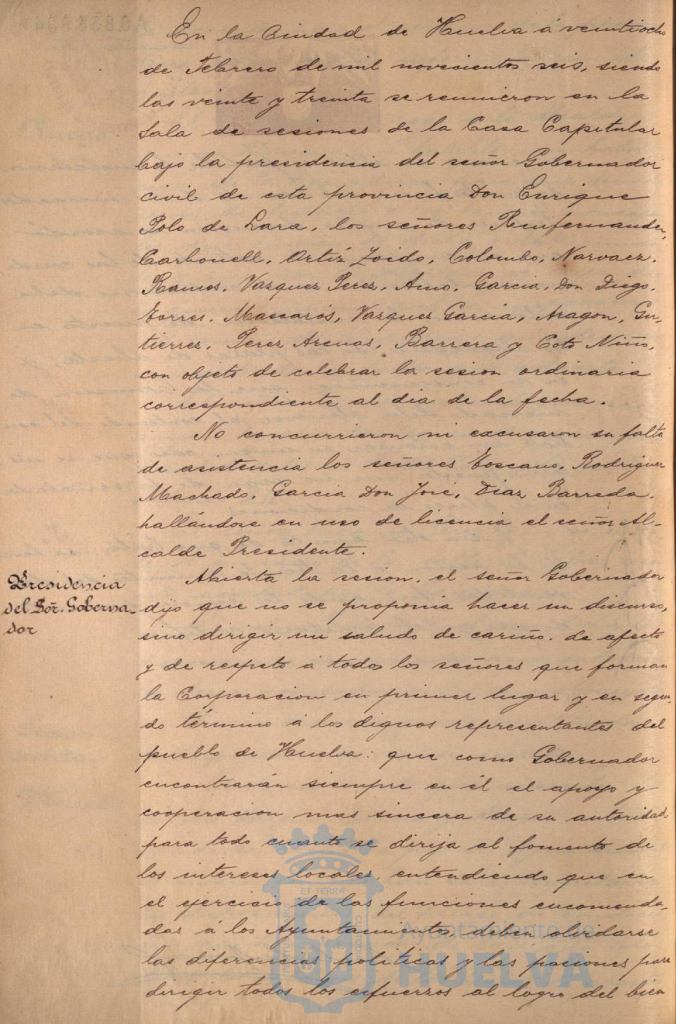 En la Ciudad de Huelva á veintiocho
de Febrero de mil novecientos seis, siendo
las veinte y treinta se reunieron en la
Sala de sesiones de la Casa Capitular
bajo la presidencia del señor Gobernador
civil de esta provincia Don Enrique
Polo de Lara, los señores
Carbonell, Ortiz Zoido, Colombo, Narvaez,
Ramos, Vazquez Perez, Amo, Garcia, Don Diego,
Torres, Mascarós, Vazquez Garcia, Aragon, Gu-
tierrez, Perez Arenas, Barrera y Coto Niño,
con objeto de celebrar la sesion ordinaria
correspondiente al dia de la fecha.
No concurrieron ni excusaron su falta
de asistencia los señores Toscano, Rodriguez
Machado, Garcia Don José, Diaz Barreda,
hallándose en uso de licencia el señor Al-
calde Presidente.
Presidencia
del Sor. Goberna-
dor
Abierta la sesion, el señor Gobernador
dijo que no se proponia hacer un discurso,
sino dirigir un saludo de cariño, de afecto
y de respeto á todos los señores que forman
la Corporacion en primer lugar y en segun-
do término á los dignos representantes del
pueblo de Huelva: que como Gobernador
encontrarán siempre en él el apoyo y
cooperacion mas sincera de su autoridad
para todo cuanto se dirija al fomento de
los intereses locales, entendiendo que en
el ejercicio de las funciones encomenda-
das á los Ayuntamientos, deben olvidarse
las diferencias politicas y las pasiones para
dirigir todos los esfuerzos al logro del bien
Ayuntamiento de
HUELVA